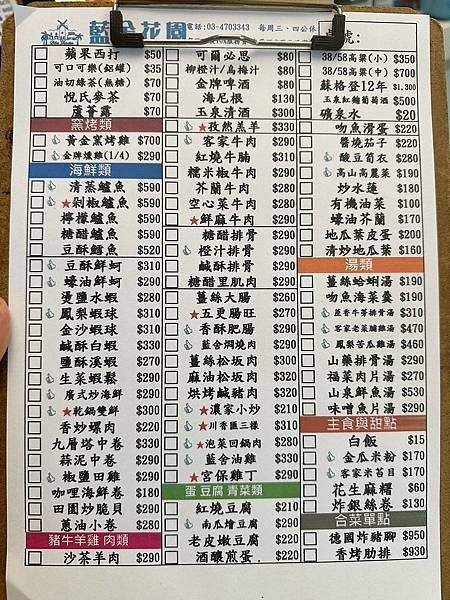 藍舍花園
電話:03-4703343 每周三、四公休
號:
蘋果西打 $50
可口可樂(鋁罐) $35
油切綠茶(無糖) $70
悅氏麥茶 $70
蘆薈露 $70
窯烤類
黃金窯烤雞 $700
金牌爐雞(1/4) $290
海鮮類
清蒸鱸魚 $590
★剁椒鱸魚 $590
檸檬鱸魚 $590
糖醋鱸魚 $590
豆酥鱈魚 $520
豆酥鮮蚵 $310
蠔油鮮蚵 $290
燙鹽水蝦 $280
鳳梨蝦球 $310
金沙蝦球 $310
鹹酥白蝦 $330
鹽酥溪蝦 $270
生菜蝦鬆 $290
廣式炒海鮮 $290
★乾鍋雙鮮 $300
香炒螺肉 $220
九層塔中卷 $330
蒜泥中卷 $290
椒鹽田雞 $290
咖哩海鮮卷 $180
田園炒脆貝 $290
蔥油小卷 $280
豬牛羊雞 肉類
沙茶羊肉 $290
可爾必思 $80
柳橙汁/烏梅汁 $80
金牌啤酒 $80
海尼根 $130
玉泉清酒 $300
★孜然羔羊 $330
客家牛肉 $290
紅燒牛腩 $310
糯米椒牛肉 $290
芥蘭牛肉 $280
空心菜牛肉 $290
★鮮麻牛肉 $290
糖醋排骨 $290
橙汁排骨 $290
鹹酥排骨 $290
糖醋里肌肉 $290
薑絲大腸 $260
★五更腸旺 $270
香酥肥腸 $290
藍舍燜燒肉 $290
薑絲松坂肉 $320
麻油松坂肉 $320
烘烤鹹豬肉 $320
★濃家小炒 $210
★川香匯三樣 $310
★泡菜回鍋肉 $280
藍舍油雞 $330
★宮保雞丁 $290
蛋 豆腐 青菜類
紅燒豆腐 $210
南瓜燴豆腐 $290
老皮嫩豆腐 $220
酒釀煎蛋 $220
38/58高粱(小) $350
38/58高粱(中) $700
蘇格登12年 $1,300
玉泉紅麴葡萄酒 $500
礦泉水 $20
吻魚滑蛋 $220
醬燒茄子 $220
酸豆筍衣 $280
高山高麗菜 $190
炒水蓮 $180
有機油菜 $100
蠔油芥蘭 $170
地瓜葉皮蛋 $200
清炒地瓜葉 $160
湯類
薑絲蛤蜊湯 $190
吻魚海菜羹 $190
蘆香牛蒡排骨湯 $310
客家老菜脯雞湯 $470
鳳梨苦瓜雞湯 $460
山藥排骨湯 $290
福菜肉片湯 $270
山泉鮮魚湯 $530
味噌魚片湯 $290
主食與甜點
白飯 $15
金瓜米粉 $170
客家米苔目 $170
花生麻糬 $60
炸銀絲卷 $130
合菜單點
德國炸豬腳 $950
香烤肋排 $930